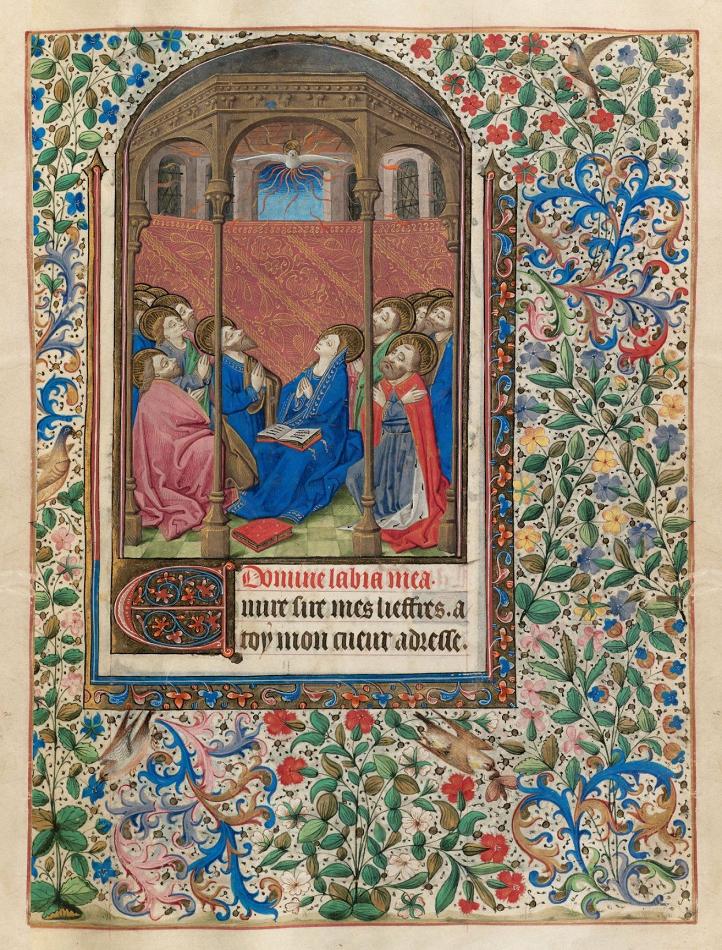 Domine labia mea.
Euure sire mes lieffres. a
toy mon cueur adresse.